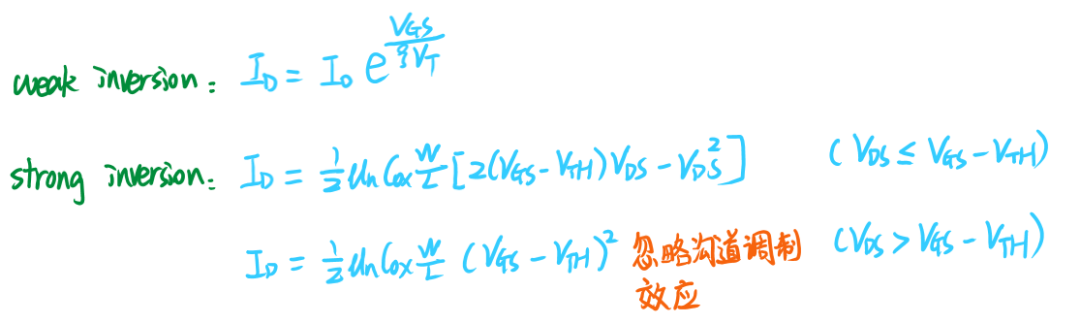 weak inversion: I_D = I_0 e^{V_GS / ξV_T}
strong inversion: I_D = 1/2 μ_n C_ox W/L [2(V_GS - V_TH)V_DS - V_DS^2] (V_DS ≤ V_GS - V_TH)
I_D = 1/2 μ_n C_ox W/L (V_GS - V_TH)^2 忽略沟道调制 (V_DS > V_GS - V_TH)
效应